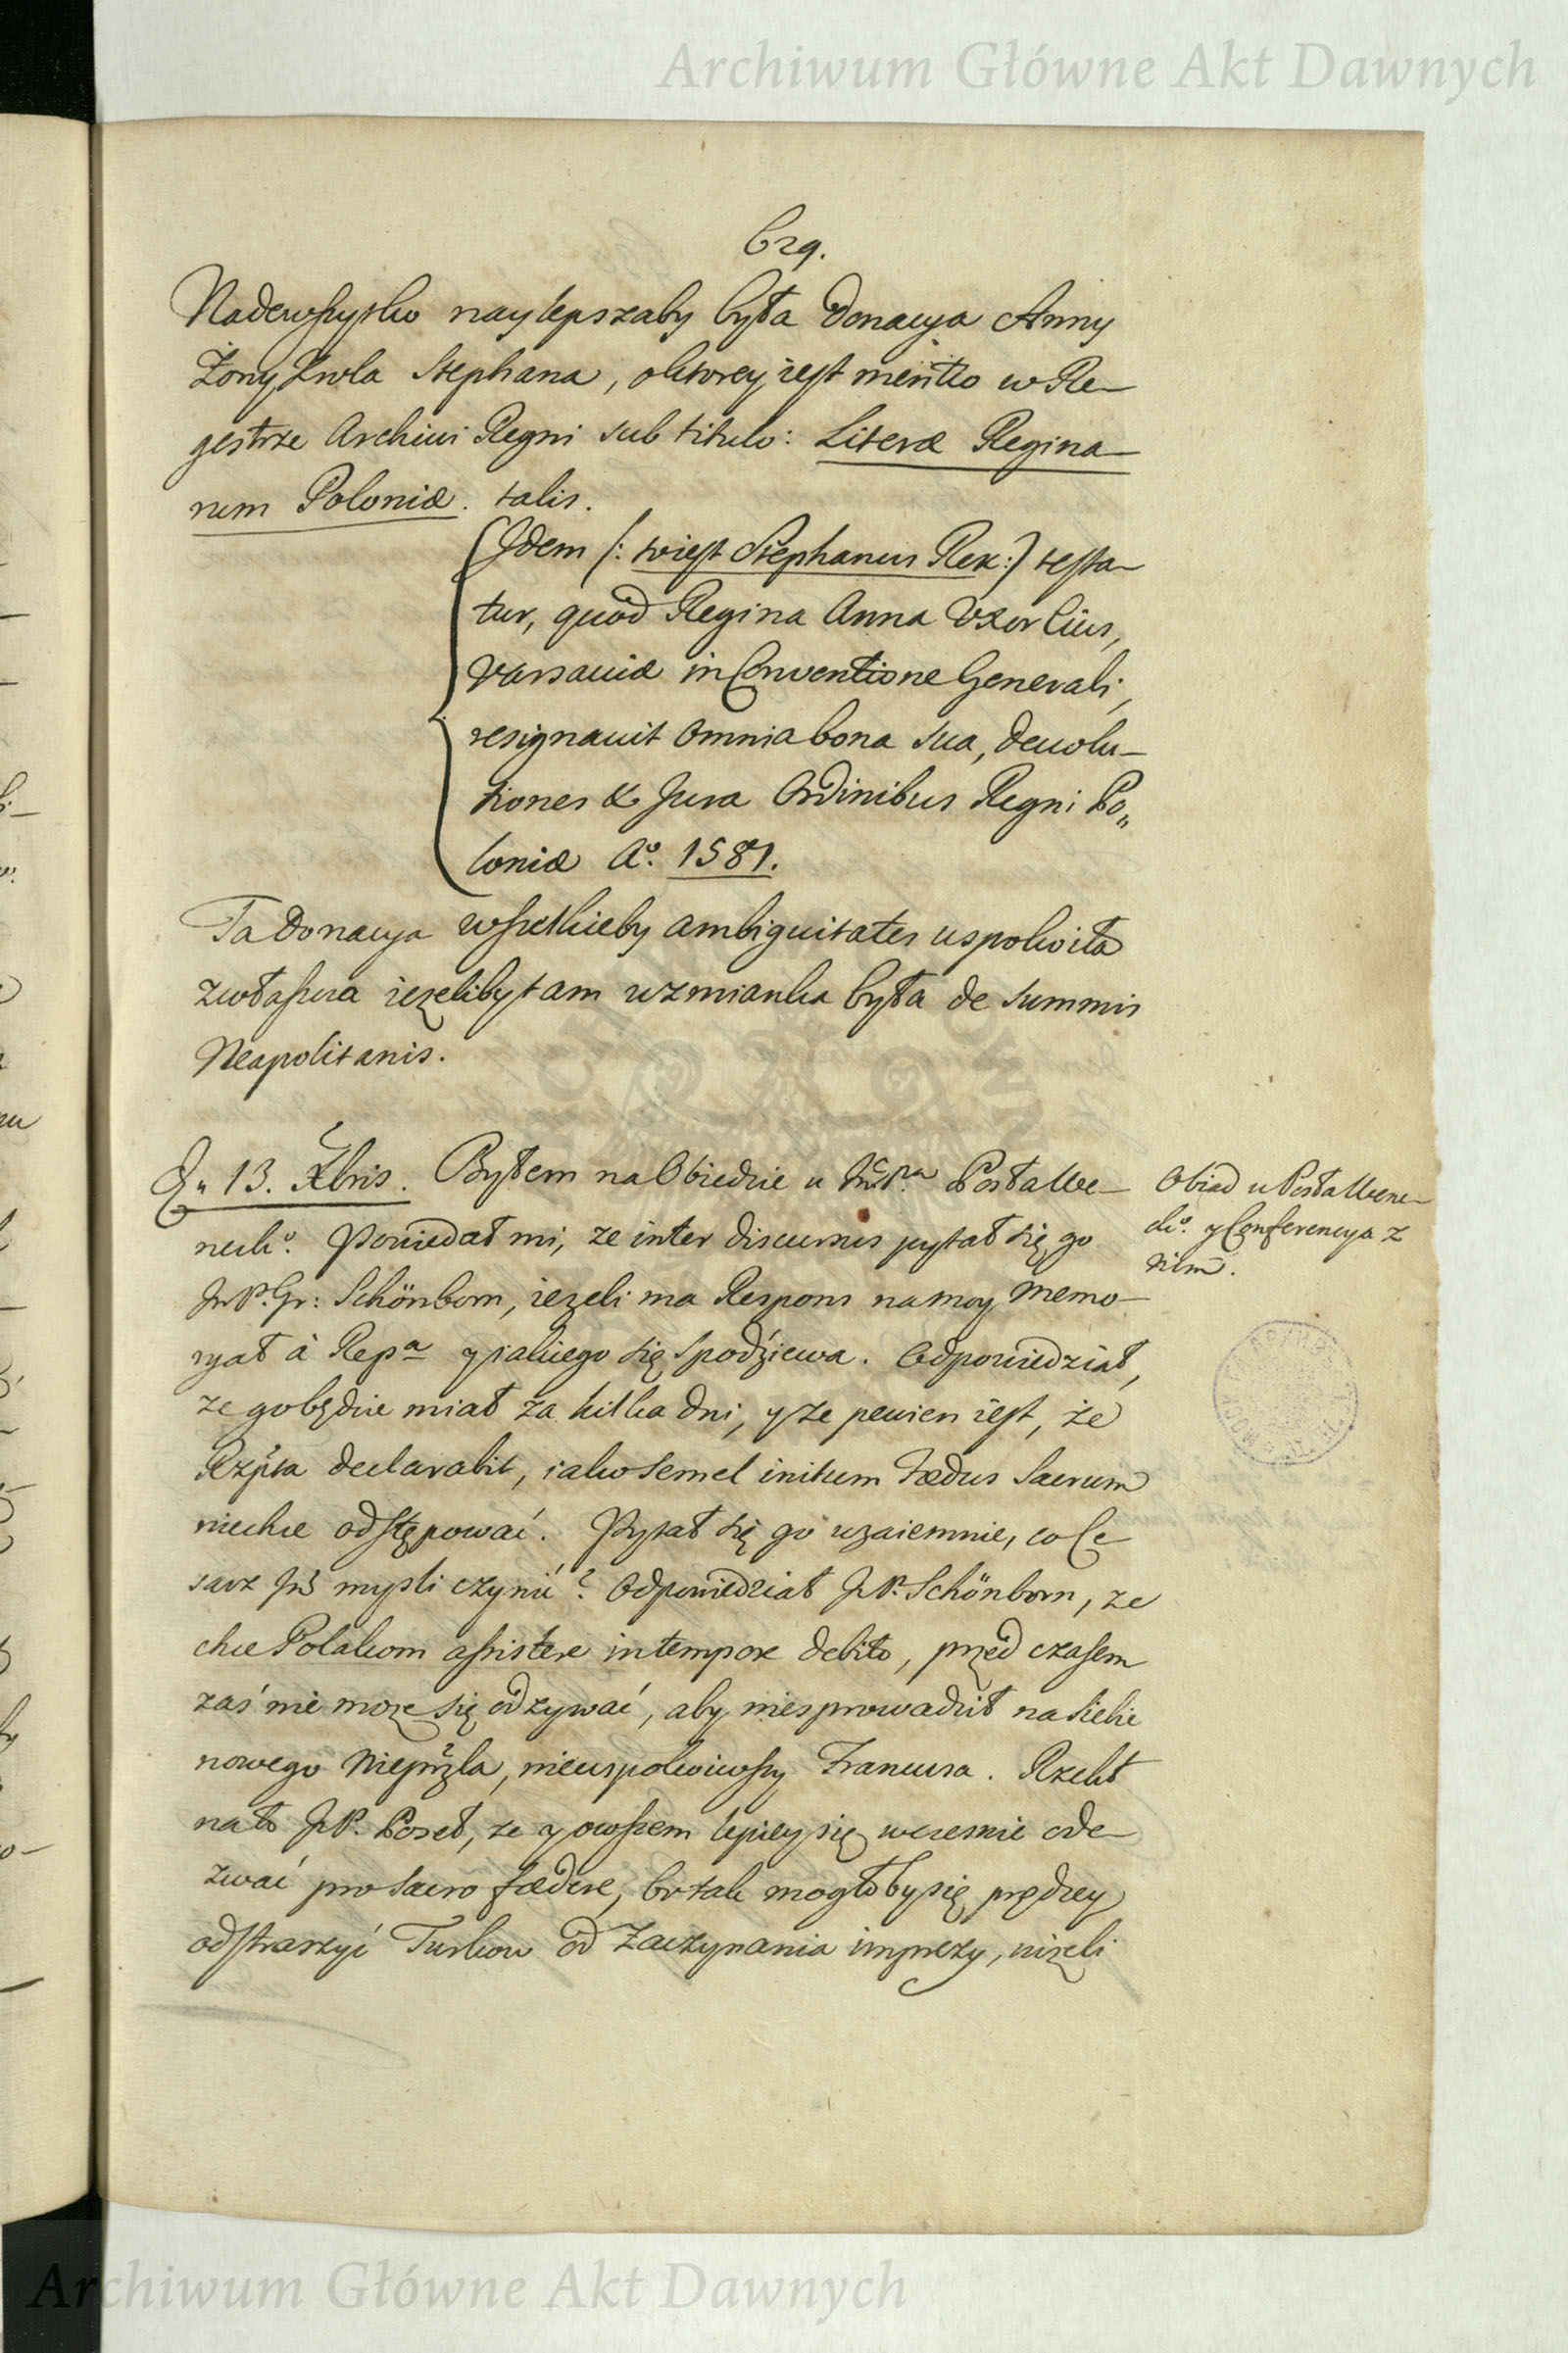 Archiwum Główne Akt Dawnych
629.
Nadewszystko naylepszaby była Donacya Anny
Żony Krola Stephana, oktorey iest mentio w Re-
gestrze Archivi Regni sub titulo: Literæ Regina-
rum Poloniæ. talis.
Idem (: twiest Stephanus Rex:) testa-
tur, quod Regina Anna Vxor Eius,
Varsaviæ in Conventione Generali,
resignavit Omnia bona sua, devolu-
tiones & Jura Ordinibus Regni Po„
loniæ Aº. 1581.
Ta Donacya wszelkieby ambiguitates uspokoiła
zwłaszcza ieżeliby tam wzmianka była de summis
Neapolitanis.
13. Xbris. Byłem na Obiedzie u Posła We-
neckº. Powiedał mi, ze inter discursus pytał się go
JmP. Gr: Schönborn, ieżeli ma Respons na moy Memo-
ryał à Repca y iakiego się spodziewa. Odpowiedział,
ze go będzie miał za kilka dni, y ze pewien iest, że
Rzpta declarabit, iako semel initum Fædus Sacrum
niechce odstępować. Pytał się go wzaiemnie, co Ce-
sarz Jmć mysli czynić? Odpowiedział JP. Schönborn, ze
chce Polakom assistere in tempore debito, przed czasem
zaś nie może się odzywać, aby niesprowadził na siebie
nowego Nieprzla, nieuspokoiwszy Francuza. Rzekł
na to JP. Poseł, ze y owszem lepiey się wczesnie ode-
zwać pro sacro fœdere, bo tak mogłoby się prędzey
odstraszyć Turkow od Zaczynania imprezy, niżeli
Obiad u Posła Wene-
ckº. y Conferencya z
nim.
Archiwum Główne Akt Dawnych